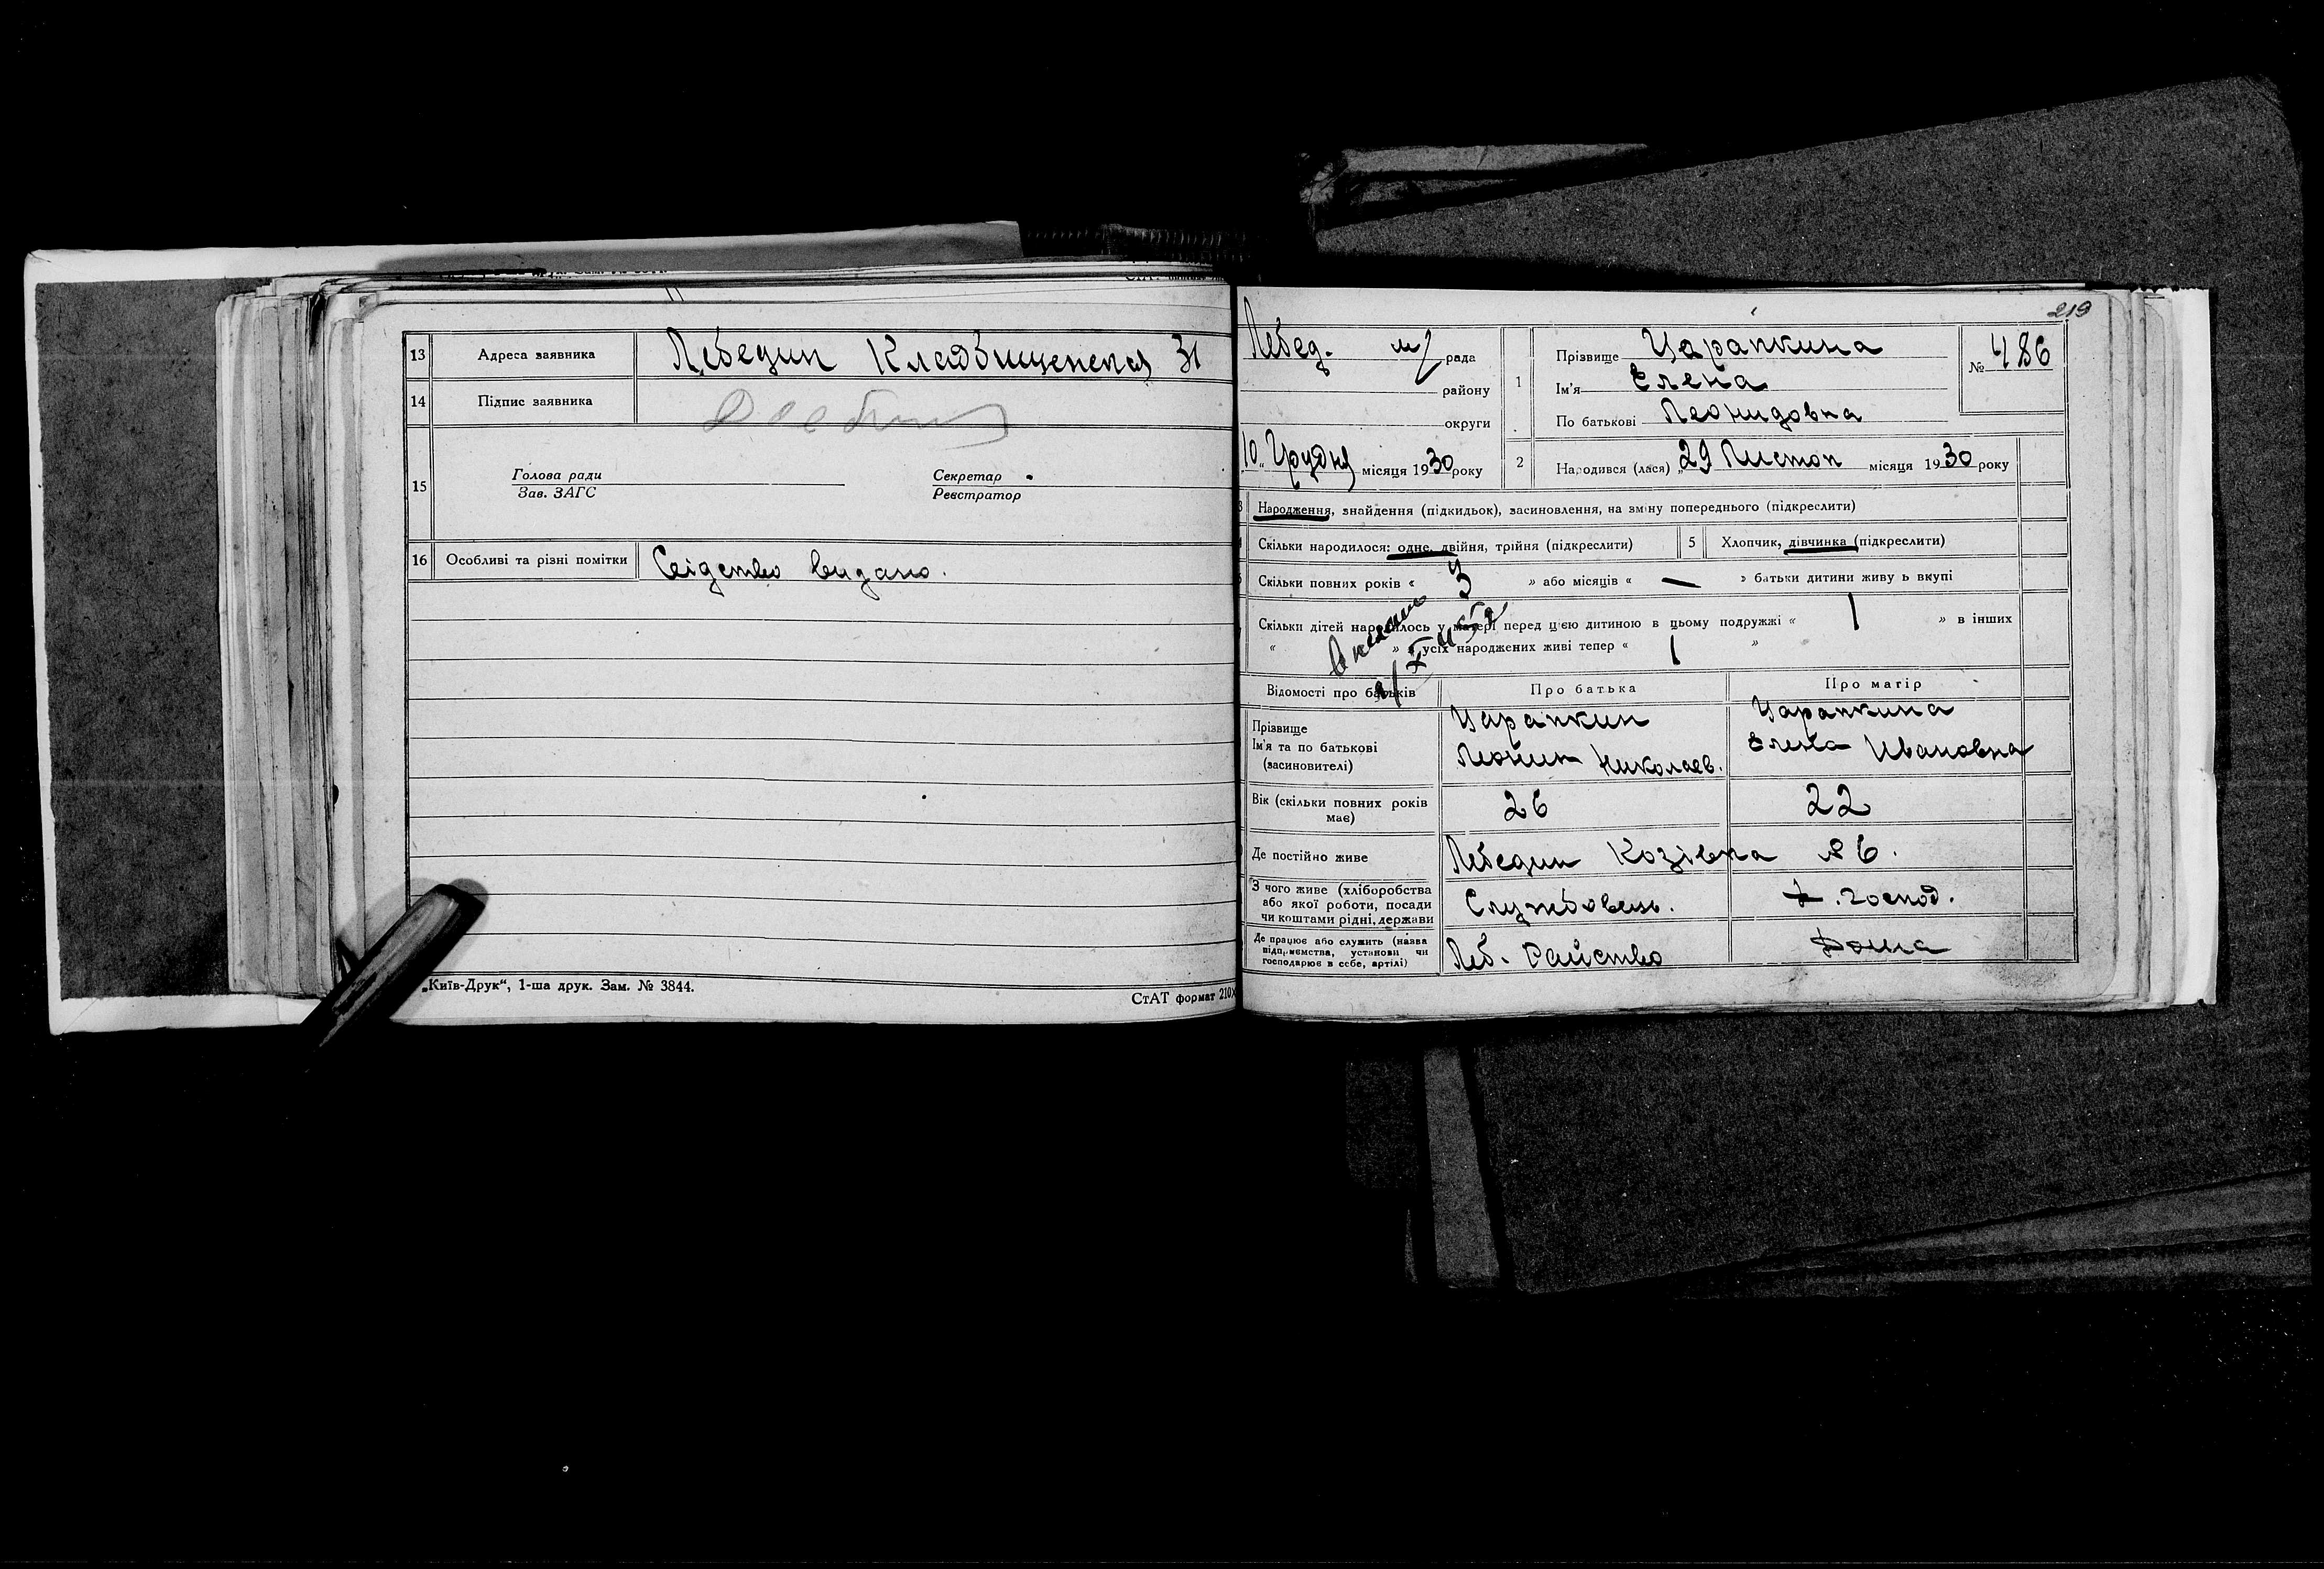 13 Адреса заявника Лебедин Кладбищенская 31
14 Підпис заявника
15 Голова ради Секретар
Зав. ЗАГС Реєстратор
16 Особливі та різні помітки Свідетво видано.
„Київ-Друк“, 1-ша друк. Зам. № 3844.
СтАТ формат 210
219
Лебед. м/ рада
району
округи
10 „ Грудня місяця 1930 року
1 Прізвище Царапкина
Ім'я Елена
По батькові Леонидовна
№ 486
2 Народився (лася) „29 Листоп місяця 1930 року
3 Народження, знайдення (підкидьок), засиновлення, на зміну попереднього (підкреслити)
Скільки народилося: одне, двійня, трійня (підкреслити)
5 Хлопчик, дівчинка (підкреслити)
Скільки повних років « 3 » або місяців « — » батьки дитини живу ь вкупі
Скільки дітей народилось у матері перед цією дитиною в цьому подружжі « 1 » в інших
« » усіх народжених живі тепер « 1 »
Відомості про батьків Про батька Про матір
Прізвище Царапкин Царапкина
Ім'я та по батькові Леонид Николаев. Елена Ивановна
(засиновителі)
Вік (скільки повних років 26 22
має)
Де постійно живе Лебедин Козівка 86.
З чого живе (хліборобства
або якої роботи, посади Службовець. х. господ.
чи коштами рідні, держави
Де працює або служить (назва
підприємства, установи чи Леб. Дома
господарює в себе, артілі)